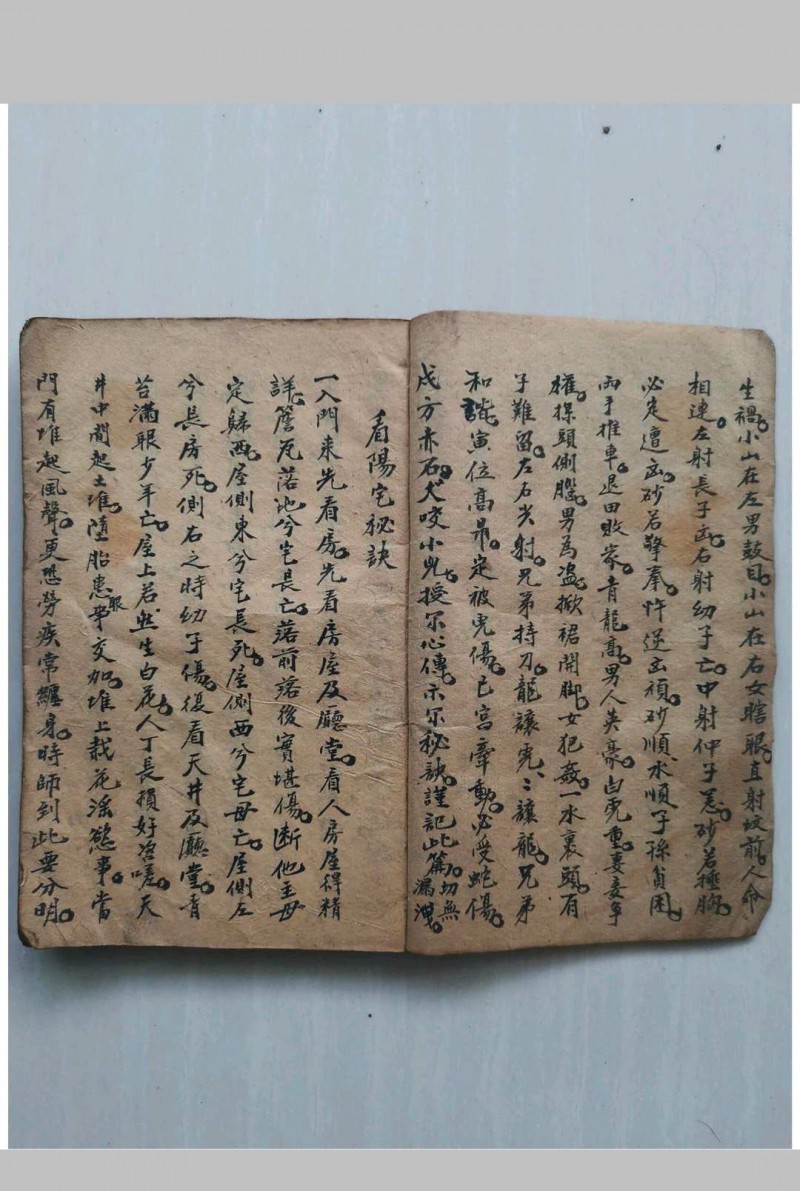 生禍。小山在左男鼓目。小山在右女瞎眼。直射坟前。人命
相連。左射長子凶。右射幼子亡。中射仲子惡。砂若捶胸。
必定遭凶。砂若擎拳。忤逆凶頑。砂順水順子孫貧困。
両手推車。退田敗家。青龍高。男人英豪。白虎重。妻妾爭
權。探頭側腦。男為盗。掀裙開脚。女犯姦。一水裹頭。有
子難留。左右尖射。兄弟持刀。龍讓虎、虎讓龍。兄弟
和諧。寅位高昂。定被虎傷。巳宮牽動。必受蛇傷。
戌方赤石。犬咬小兒。授尔心傳。示尔秘訣。謹記此篇。切無漏洩。
看陽宅秘訣
一入門来先看房。先看房屋及廳堂。看人房屋得精
詳。簷瓦落地兮宅長亡。落前落後實堪傷。断他主母
定歸西。屋側東兮宅長死。屋側西兮宅母亡。屋側左
兮長房死。側右之時幼子傷。復看天井及廳堂。青
苔滿眼少年亡。屋上若然生白花。人丁長損好咨嗟。天
井中間起土堆。墮胎患眼事交加。堆上栽花淫慾事。當
門有堆起風聲。更恐勞疾常纏身。時師到此要分明。